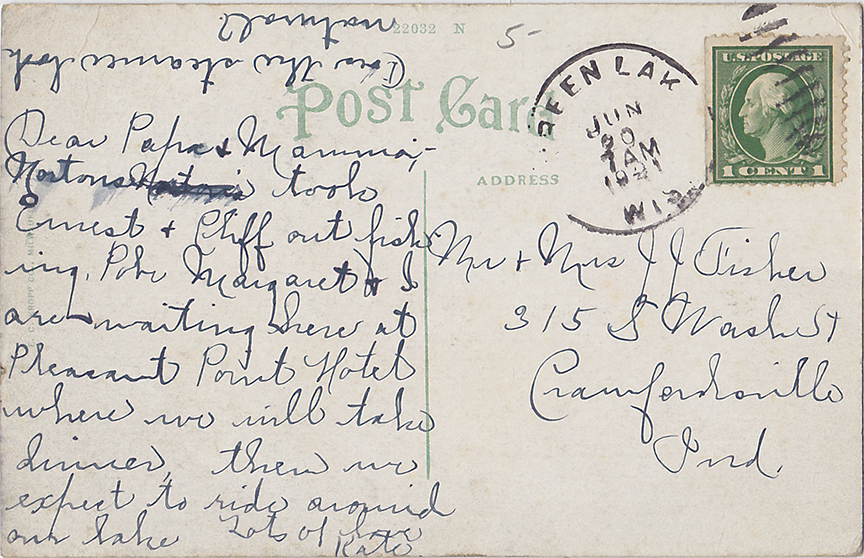 natural?
Does the steamer look
22032 N
5-
Post Card
ADDRESS
GREEN LAK
JUN
20
7 AM
1921
WIS.
U.S. POSTAGE
1 CENT 1
Dear Papa & Mamma,-
Nortons took
Ernest & Cliff out fish-
ing. Polk Margaret & I
are waiting here at
Pleasant Point Hotel
where we will take
dinner, then we
expect to ride around
our lake Lots of love
Kate.
Mr & Mrs J J Fisher
315 S Wash St
Crawfordsville
Ind.